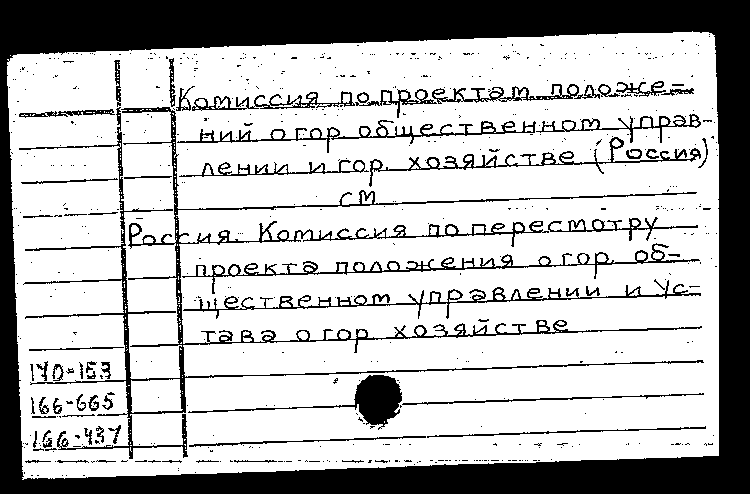 Комиссия по проектам положе-
ний о гор общественном управ-
лении и гор. хозяйстве (Россия)
см
Россия. Комиссия по пересмотру
проекта положения о гор. об-
щественном управлении и Ус-
тава о гор хозяйстве
170-153
166-665
166-437